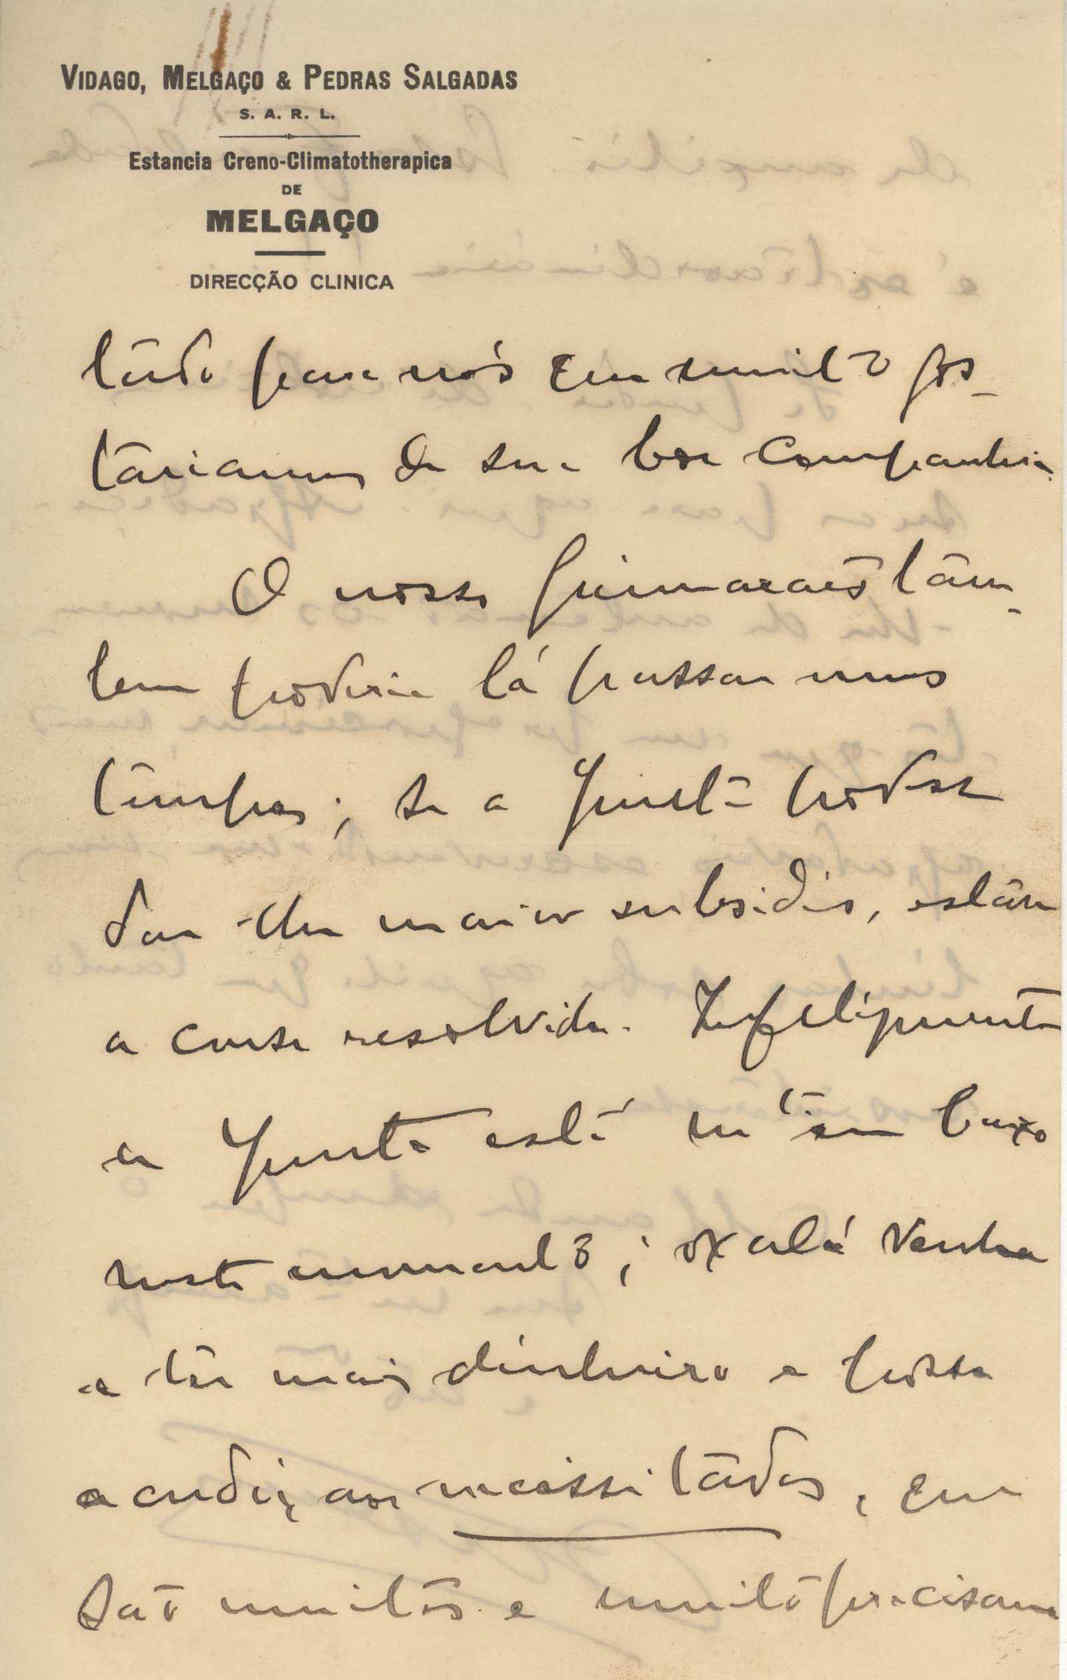 VIDAGO, MELGAÇO & PEDRAS SALGADAS
S. A. R. L.
Estancia Creno-Climatotherapica
DE
MELGAÇO
DIRECÇÃO CLINICA
tudo para nós que muito gos-
tariamos da sua boa companhia.
O nosso Guimarães tam-
bem poderia lá passar uns
tempos; se a Junta podesse
dar-lhe maior subsidio, estava
a cousa resolvida. Infelizmente
a Junta está em baixo
neste momento; oxalá venha
a ter mais dinheiro e possa
acudir aos necessitados, que
são muitos e muito precisam